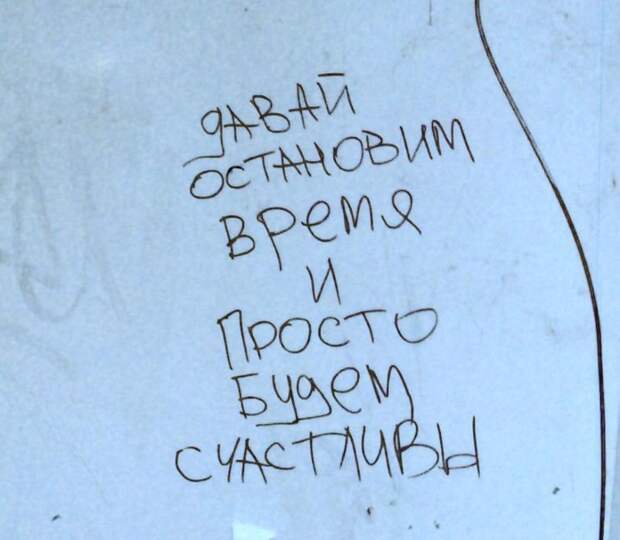 ДАВАЙ
ОСТАНОВИМ
ВРЕМЯ
И
ПРОСТО
БУДЕМ
СЧАСТЛИВЫ